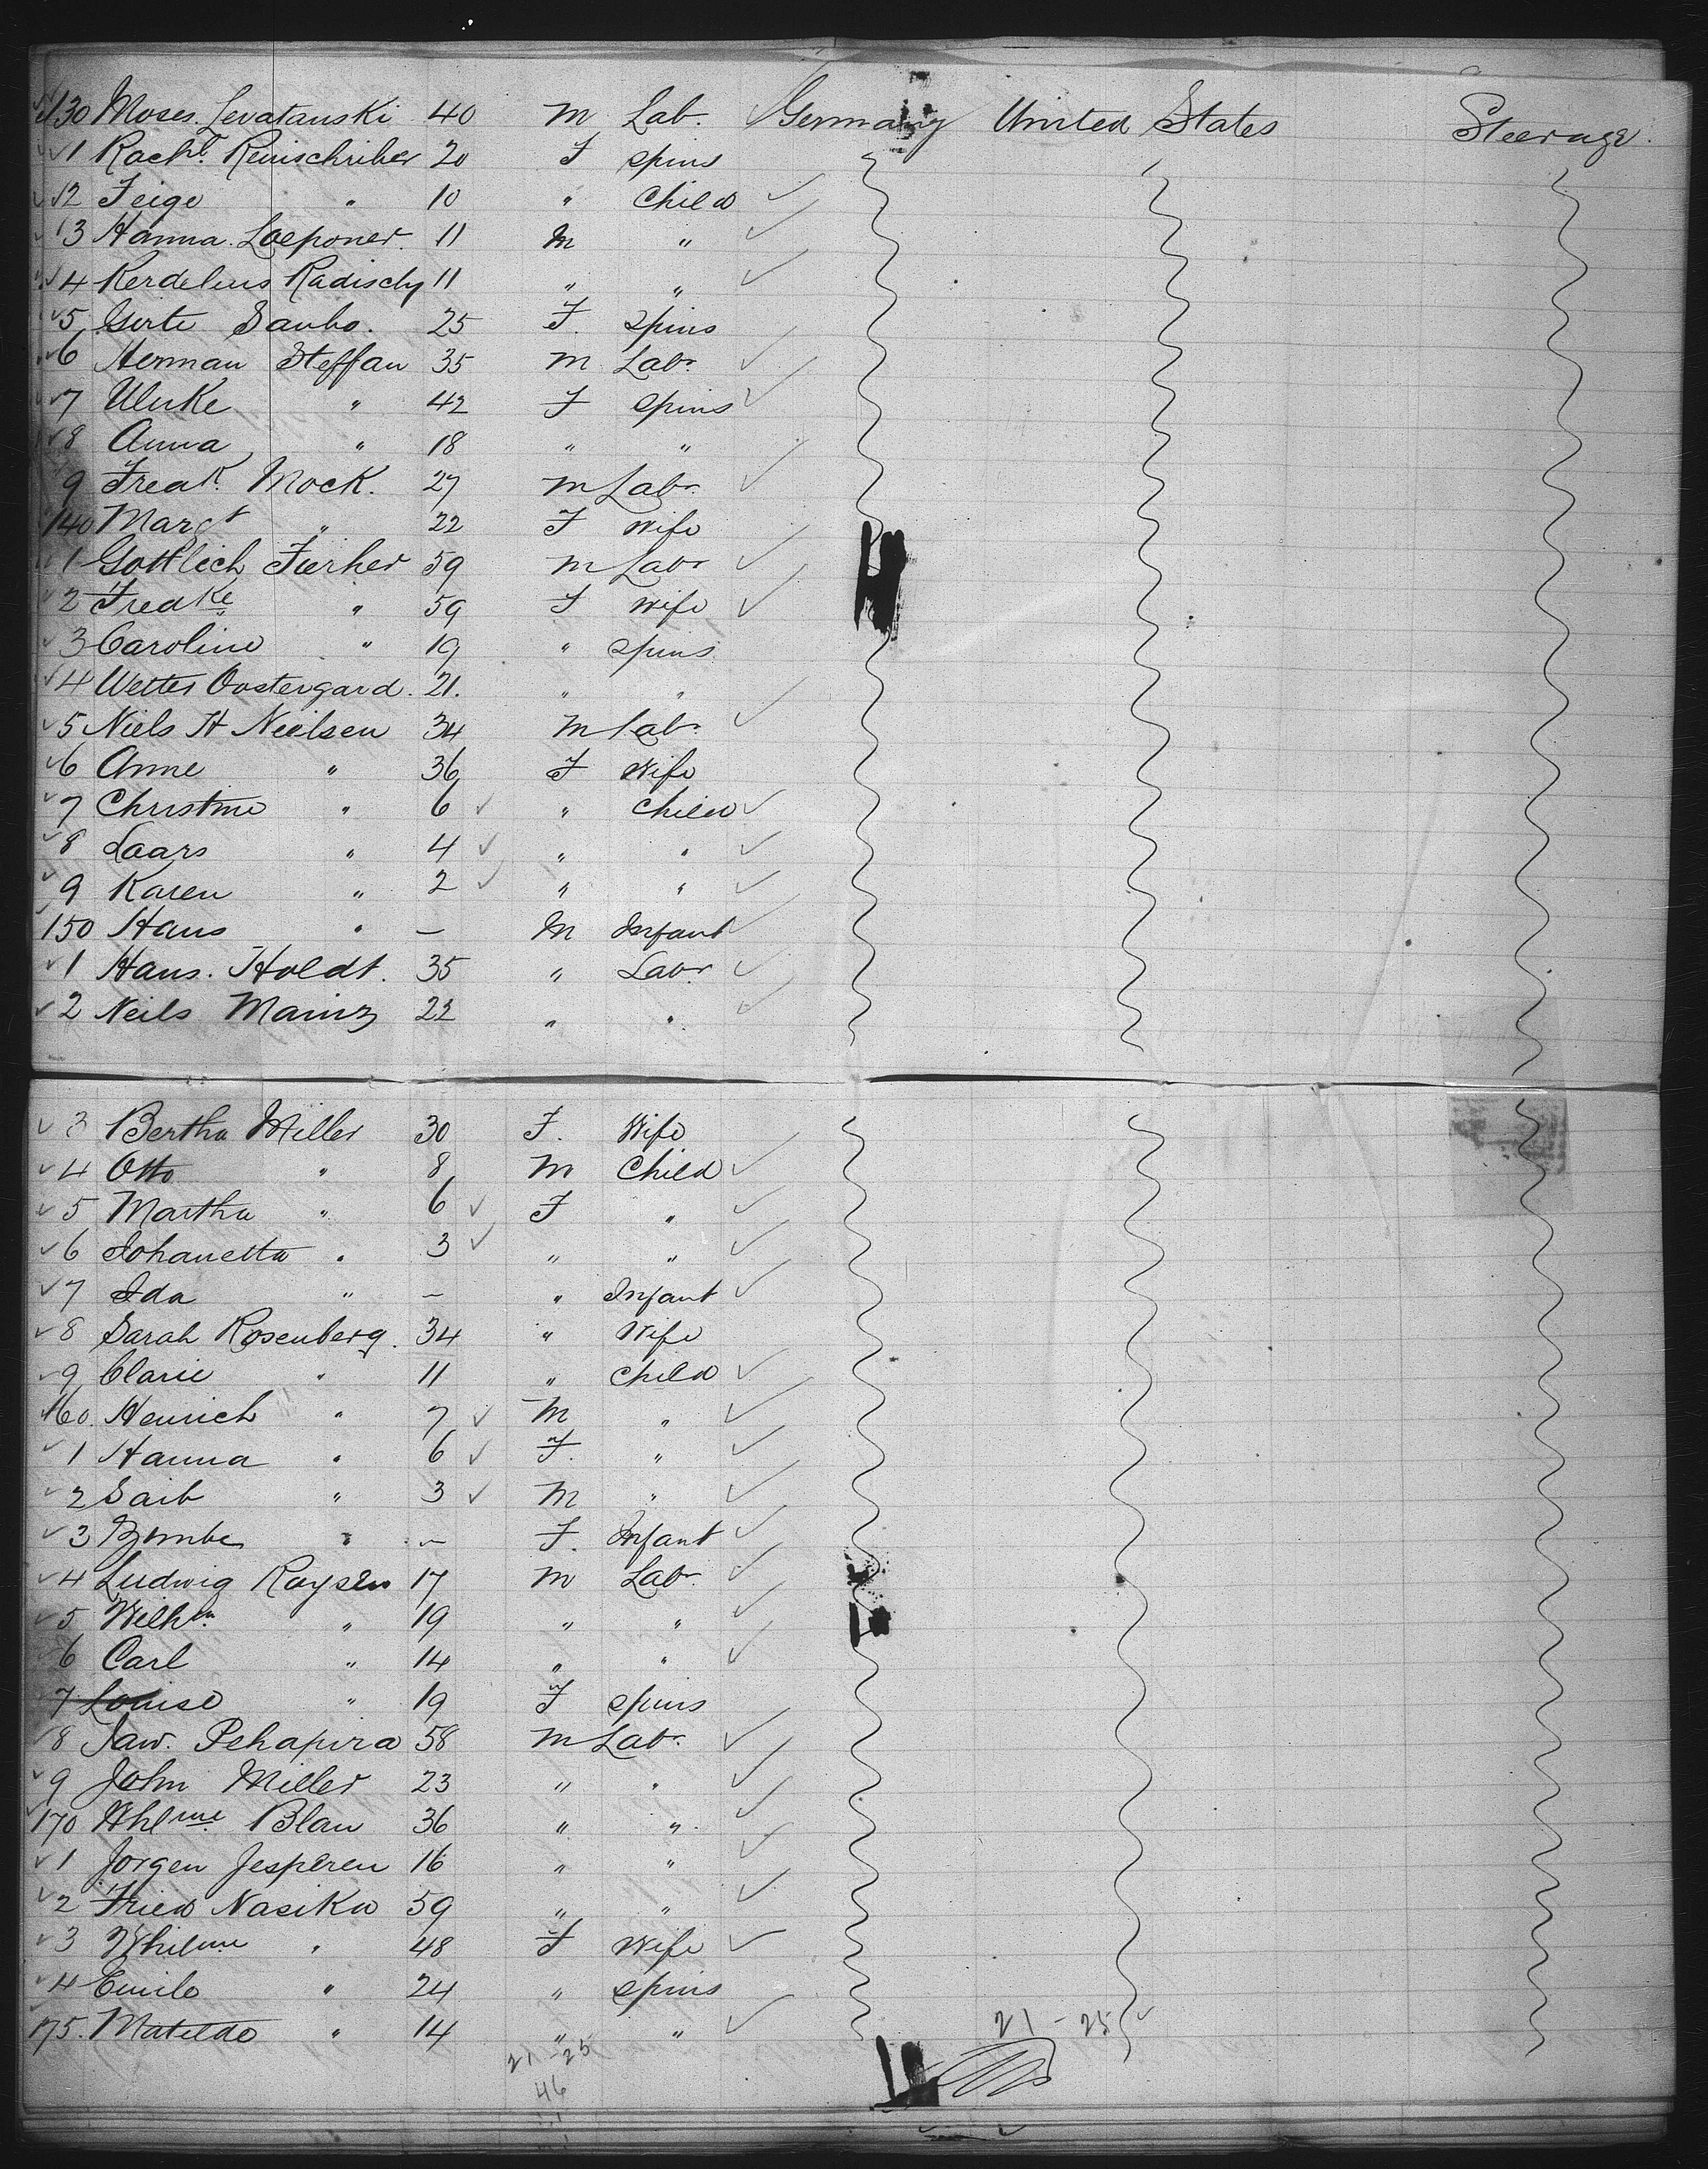 130 Moses Levatanski 40 M Lab. Germany United States Steerage.
1 Rachl. Reinschriber 20 F Spins
2 Feige " 10 " Child
3 Hanna Loeponer. 11 M "
4 Kerdelius Radischy 11 " "
5 Girte Saubo. 25 F. Spins
6 Herman Steffan 35 M Labr.
7 Ulrike " 42 F Spins
8 Anna " 18 " "
9 Fredk. Mock. 27 M Labr.
140 Margt " 22 F Wife
1 Gottlieb Fürher 59 M Labr
2 Fredke " 59 F Wife
3 Caroline " 19 " Spins.
4 Oostergard. 21. " "
5 Niels H Nielsen 34 M Labr.
6 Anne " 36 F Wife
7 Christine " 6 " Child
8 Laars " 4 " "
9 Karen " 2 " "
150 Hans " — M Infant
1 Hans. Holdt. 35 " Labr
2 Neils Mainz 22 " "
3 Bertha Miller 30 F. Wife
4 Otto " 8 M Child
5 Martha " 6 F "
6 Johanetta " 3 " "
7 Ida " — " Infant
8 Sarah Rosenberg. 34 " Wife
9 Clarie " 11 " Child
160. Henrich " 7 M "
1 Hanna " 6 F. "
2 Saib " 3 M "
3 " — F. Infant
4 Ludwig Roysen 17 M Labr.
5 Wilhm. " 19 " "
6 Carl " 14 " "
7 Louise " 19 F Spins
8 Jaw. Pehapira 58 M Labr.
9 John Miller 23 " "
170 Whlme Blau 36 " "
1 Jorgen Jesperen 16 " "
2 Fried Nasika 59 " "
3 Whilme " 48 F Wife
4 Emile " 24 " Spins
175. Matilde " 14 " "
21 - 25
21 - 25
46